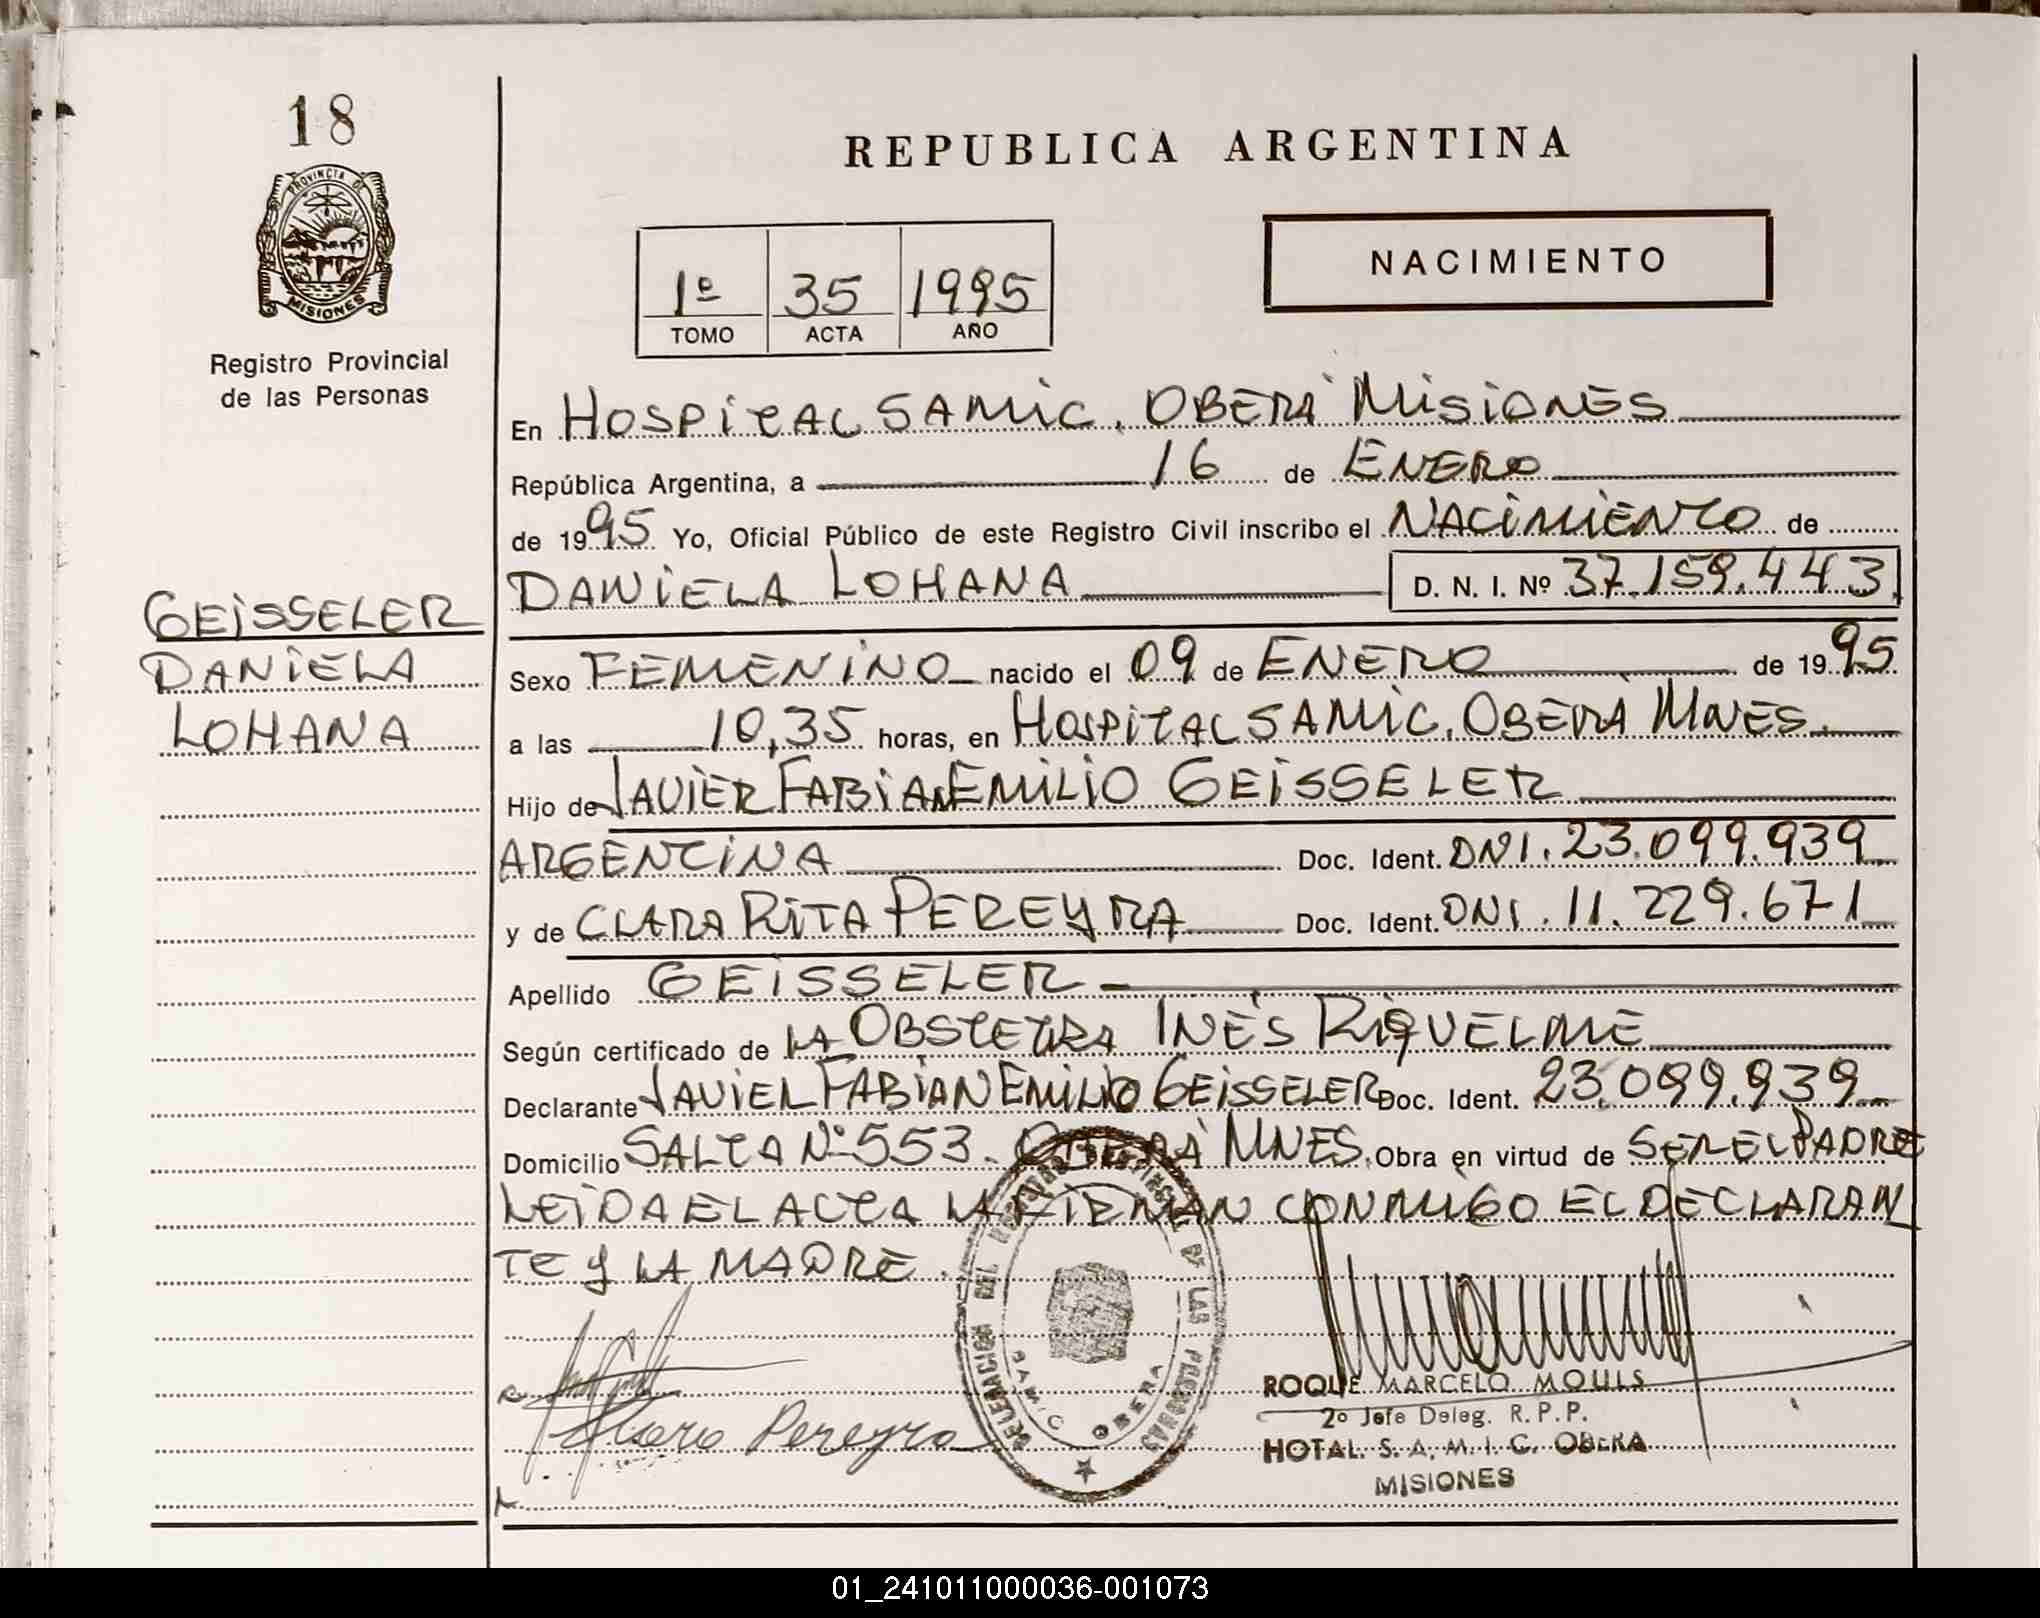 18
PROVINCIA DE
MISIONES
Registro Provincial
de las Personas
GEISSELER
DANIELA
LOHANA
REPUBLICA ARGENTINA
1º 35 1995
TOMO ACTA AÑO
NACIMIENTO
En HOSPITAL SAMIC, OBERÁ MISIONES
República Argentina, a 16 de ENERO
de 1995 Yo, Oficial Público de este Registro Civil inscribo el NACIMIENTO de
DANIELA LOHANA D. N. I. Nº 37.159.443
Sexo FEMENINO nacido el 09 de ENERO de 1995
a las 10,35 horas, en HOSPITAL SAMIC, OBERÁ MNES.
Hijo de JAVIER FABIAN EMILIO GEISSELER
ARGENTINA Doc. Ident. DNI. 23.099.939
y de CLARA RITA PEREYRA Doc. Ident. DNI. 11.229.671
Apellido GEISSELER
Según certificado de LA OBSTETRA INÉS RIQUELME
Declarante JAVIER FABIAN EMILIO GEISSELER Doc. Ident. 23.099.939
Domicilio SALTA Nº 553. OBERÁ MNES. Obra en virtud de SER EL PADRE
LEIDA EL ACTA LA FIRMAN CONMIGO EL DECLARAN
TE Y LA MADRE.
Pereyra
DELEGACION DEL REGISTRO PROVINCIAL DE LAS PERSONAS
SAMIC OBERA
ROQUE MARCELO MOULS
2º Jefe Deleg. R. P. P.
HOTAL. S. A. M. I. C. OBERA
MISIONES
01_241011000036-001073